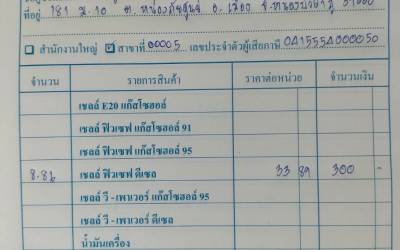 ที่อยู่ 181 ม.10 ต. หนองภัยศูนย์ อ. เมือง จ.หนองบัวลำภู 39000
สำนักงานใหญ่ ☑ สาขาที่ 00005 เลขประจำตัวผู้เสียภาษี 0415554000050
จำนวน รายการสินค้า ราคาต่อหน่วย จำนวนเงิน
เชลล์ E20 แก๊สโซฮอล์
เชลล์ ฟิวเซฟ แก๊สโซฮอล์ 91
เชลล์ ฟิวเซฟ แก๊สโซฮอล์ 95
8.86 เชลล์ ฟิวเซฟ ดีเซล 33 89 300 -
เชลล์ วี - เพาเวอร์ แก๊สโซฮอล์ 95
เชลล์ วี - เพาเวอร์ ดีเซล
น้ำมันเครื่อง